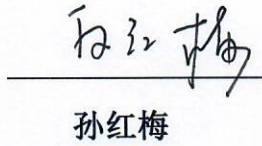 孙红梅
孙红梅